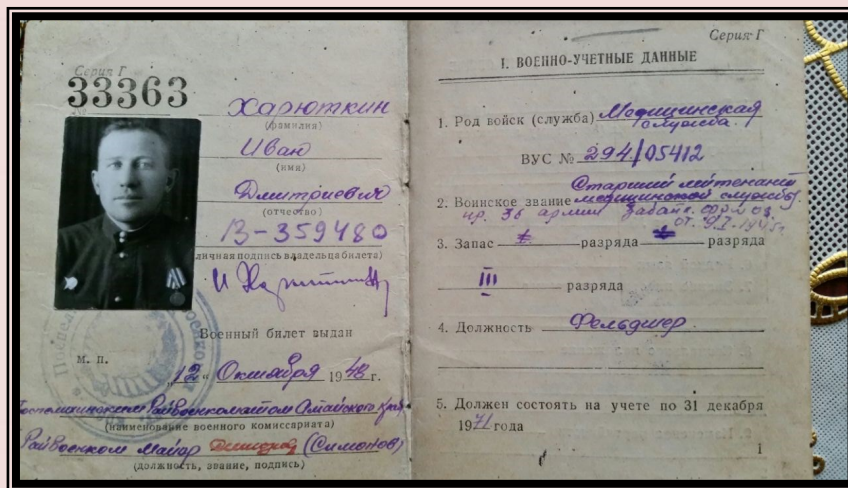 Серия Г
33363
Харюткин
(фамилия)
Иван
(имя)
Дмитриевич
(отчество)
В-359480
(личная подпись владельца билета)
Военный билет выдан
м. п.
"12" Октября 1948 г.
Райвоенкоматом Алтайского края
(наименование военного комиссариата)
Райвоенком Майор (Симонов)
(должность, звание, подпись)
Серия Г
I. ВОЕННО-УЧЕТНЫЕ ДАННЫЕ
1. Род войск (служба) Медицинская
служба.
ВУС № 294/05412
Старший лейтенант
2. Воинское звание медицинской службы
пр. 36 армии Забайк. фр. № 03
от 9.I-1945г.
3. Запас I разряда разряда
III разряда
4. Должность Фельдшер
5. Должен состоять на учете по 31 декабря
1971 года
1